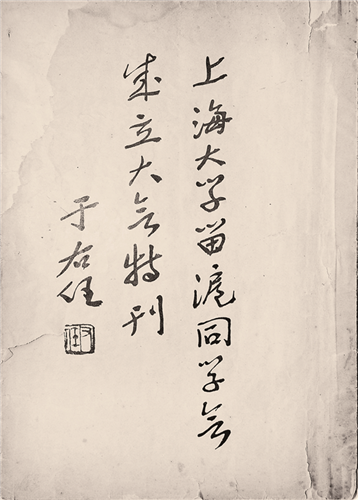 上海大学留沪同学会
成立大会特刊
于右任